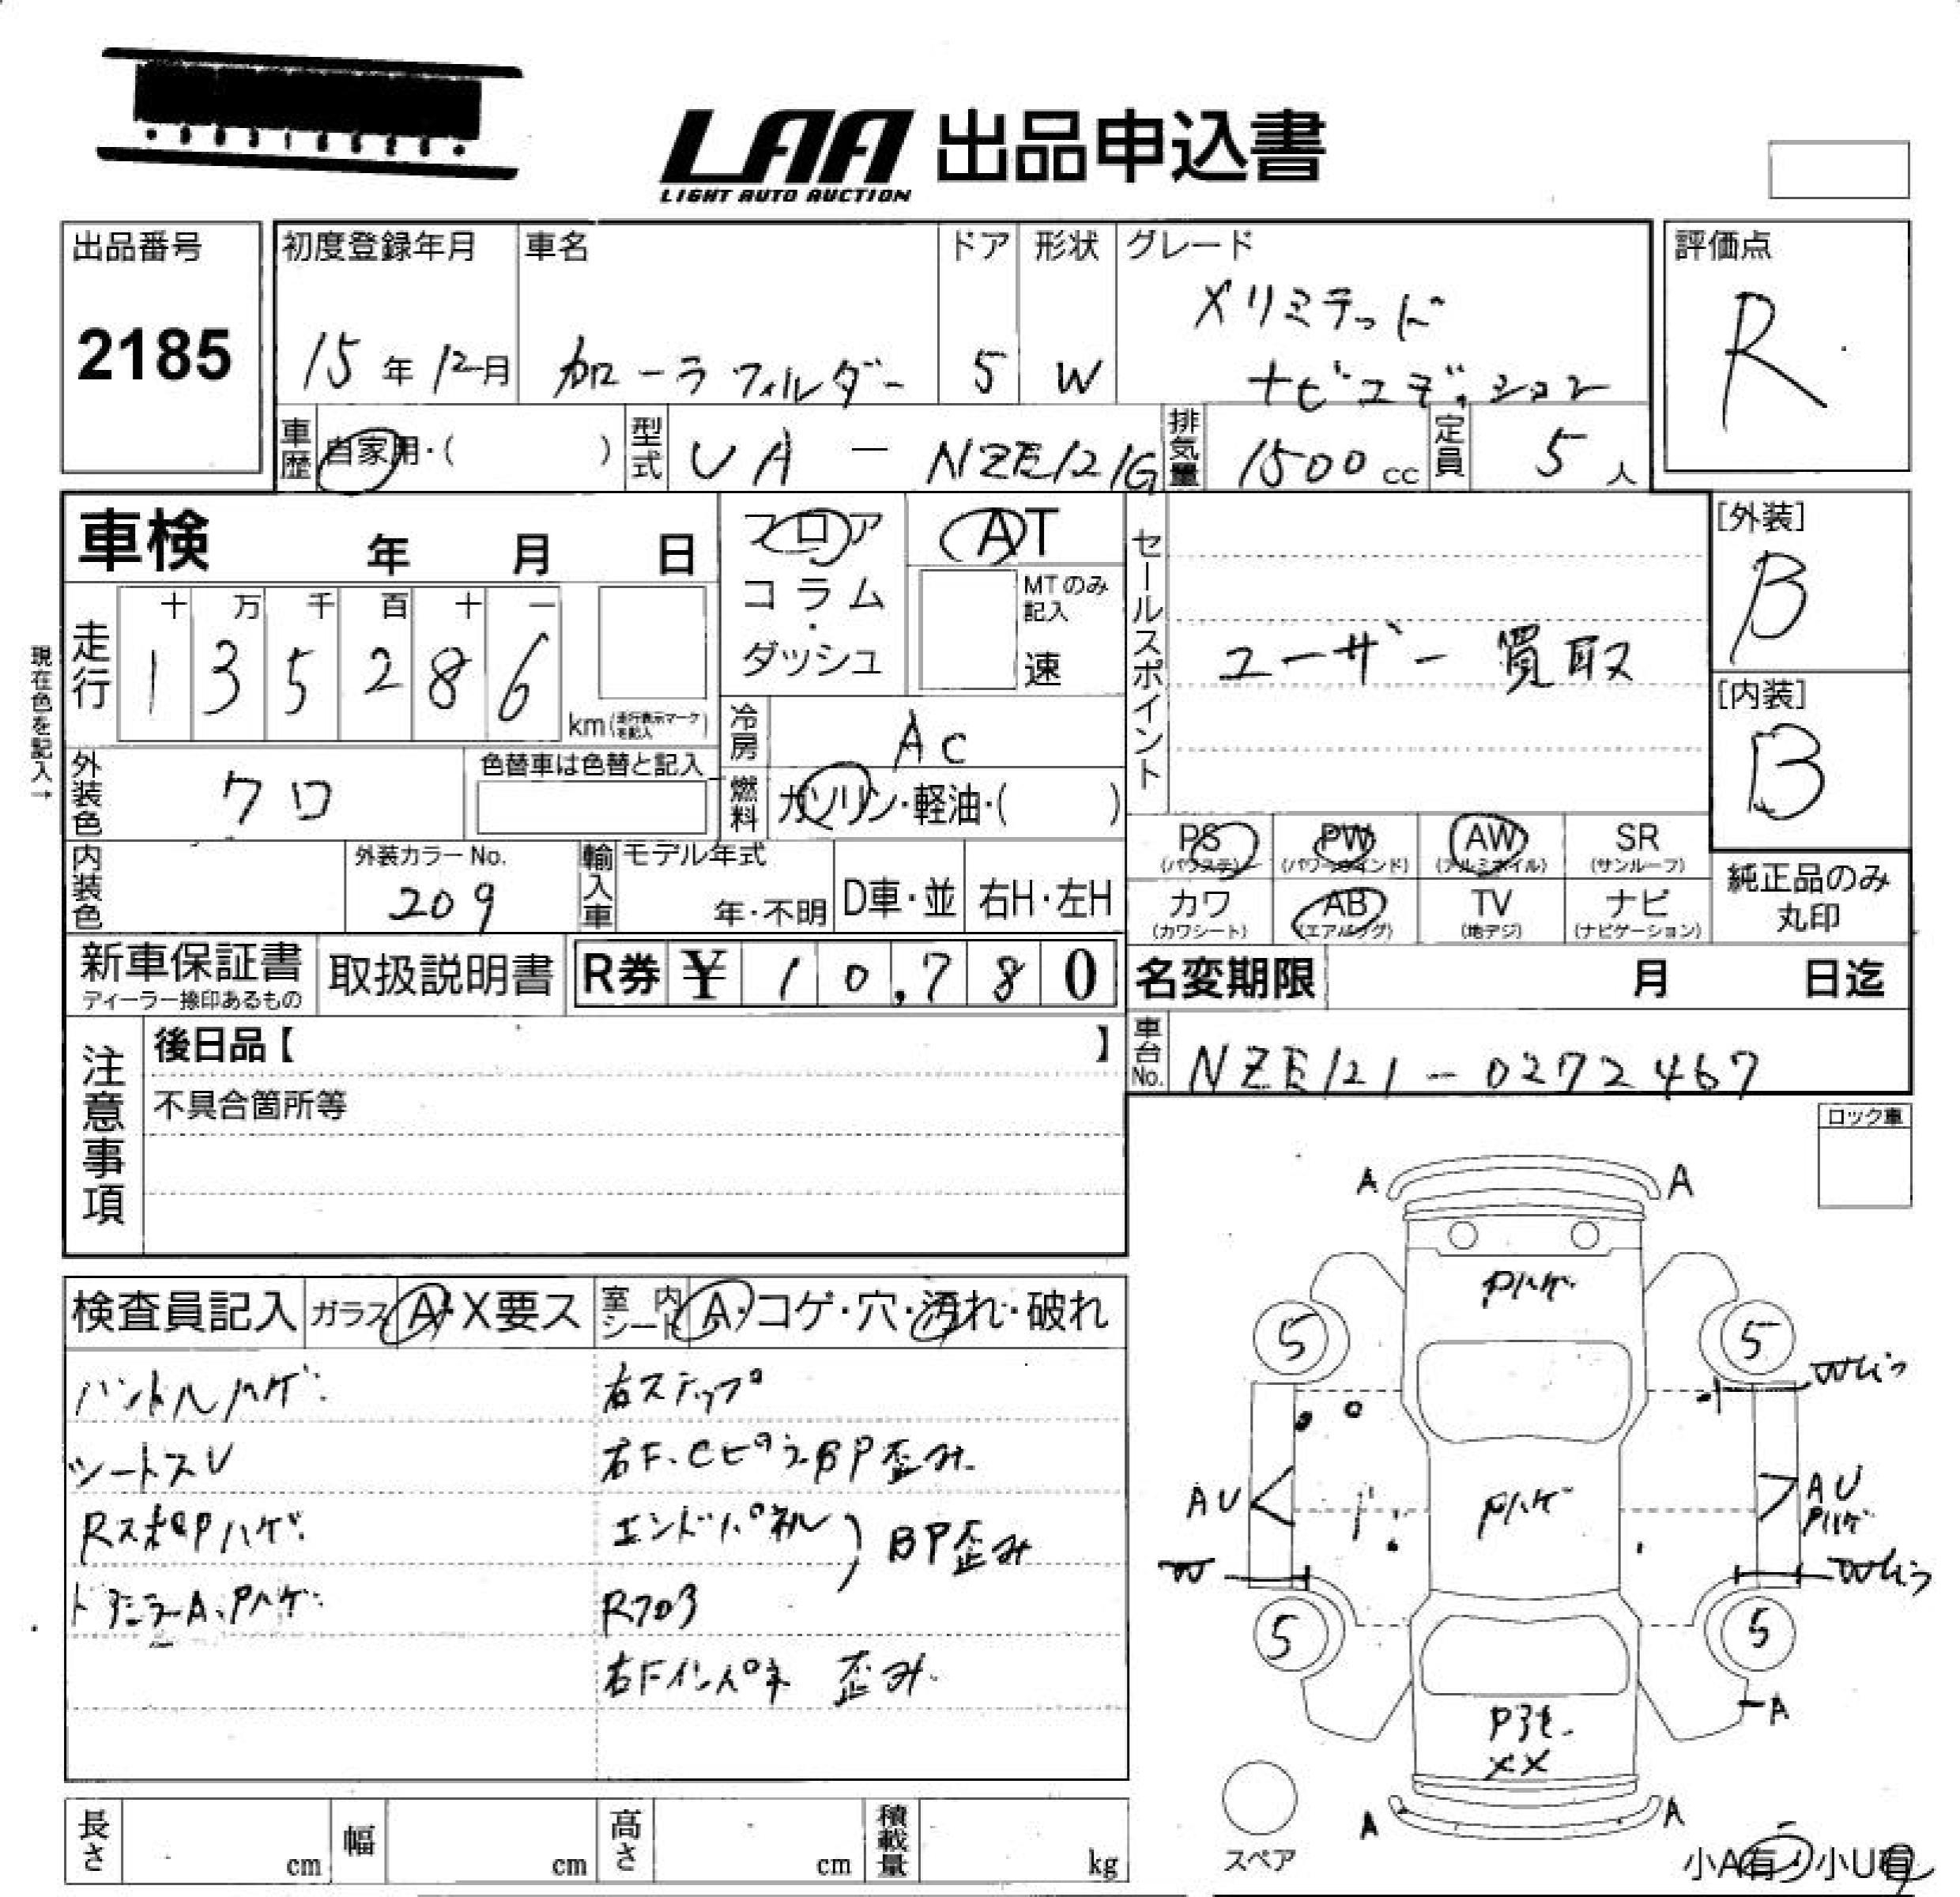 LAA 出品申込書
LIGHT AUTO AUCTION
出品番号
2185
初度登録年月
15年12月
車名
カローラフィルダー
ドア
5
形状
W
グレード
Xリミテッド
ナビエディション
評価点
R
車歴
自家用・( )
型式
UA - NZE121G
排気量
1500cc
定員
5人
車検 年 月 日
フロア
コラム
・
ダッシュ
AT
MTのみ
記入
速
セールスポイント
ユーザー買取
[外装]
B
[内装]
B
現在色を記入→
走行
十 万 千 百 十 一
1 3 5 2 8 6
km(走行表示マークを記入)
冷房
AC
燃料
ガソリン・軽油・( )
外装色
クロ
色替車は色替と記入
内装色
外装カラーNo.
209
輸入車
モデル年式
年・不明
D車・並
右H・左H
PS
(パワステ)
PW
(パワーウインド)
AW
(アルミホイル)
SR
(サンルーフ)
カワ
(カワシート)
AB
(エアバッグ)
TV
(地デジ)
ナビ
(ナビゲーション)
純正品のみ
丸印
新車保証書
ディーラー捺印あるもの
取扱説明書
R券 ¥ 10,780
名変期限 月 日迄
注意事項
後日品【 】
不具合箇所等
車台No.
NZE121-0272467
ロック車
検査員記入
ガラス A・X要ス
室内シート A・コゲ・穴・汚れ・破れ
ハンドルハゲ
シートスレ
RスポPハゲ
ドアミラーA、Pハゲ
右ステップ
右F、CピラーBP歪み
エンドパネル
Rフロア
BP歪み
右Fインパネ 歪み
A A
Pハゲ
5 5
Pハゲ
AU
AU
Pハゲ
W
5 5
A
XX
A A
スペア
小A有・小U有
長さ cm
幅 cm
高さ cm
積載量 kg